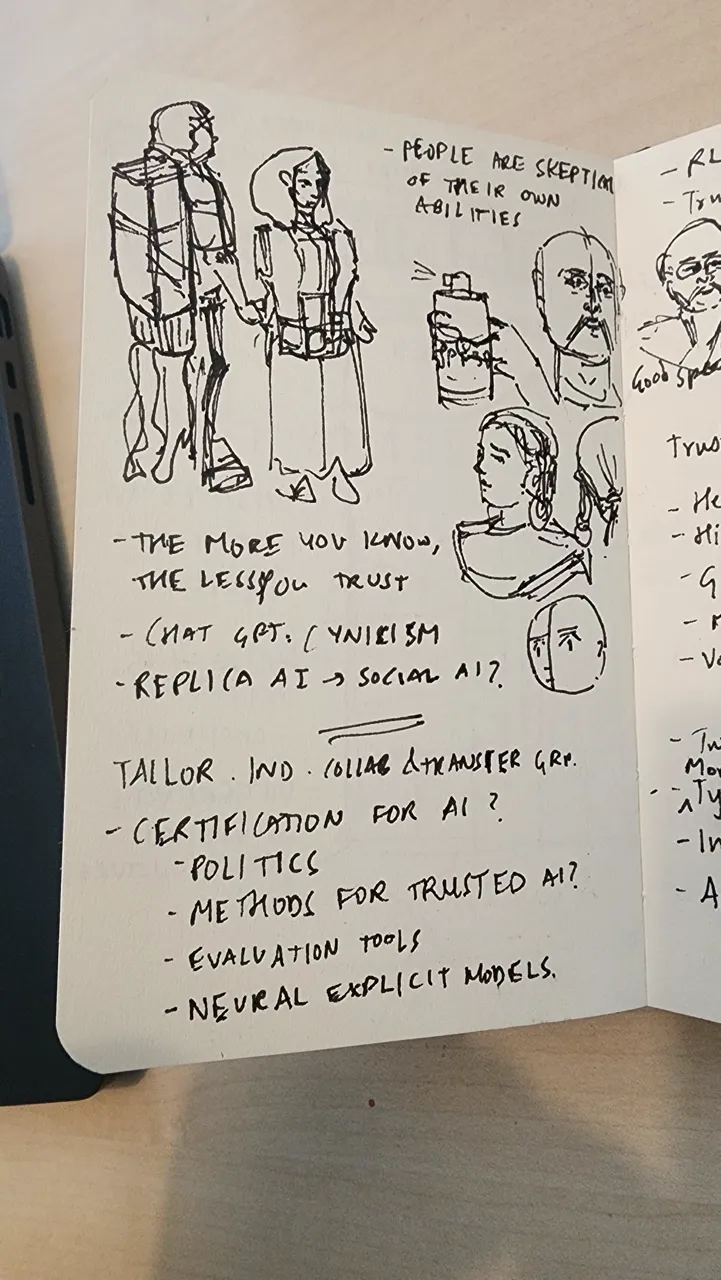 - PEOPLE ARE SKEPTICAL
OF THEIR OWN
ABILITIES
- THE MORE YOU KNOW,
THE LESS YOU TRUST
- CHAT GPT: CYNIKISM
- REPLICA AI → SOCIAL AI?
TAILOR . IND . COLLAB & TRANSFER GRP.
- CERTIFICATION FOR AI ?
- POLITICS
- METHODS FOR TRUSTED AI?
- EVALUATION TOOLS
- NEURAL EXPLICIT MODELS.
- RL
- Tru
Good spea
Trus
- He
- Hi
- G
- Va
- In
Mo
- Ty
- In
- A